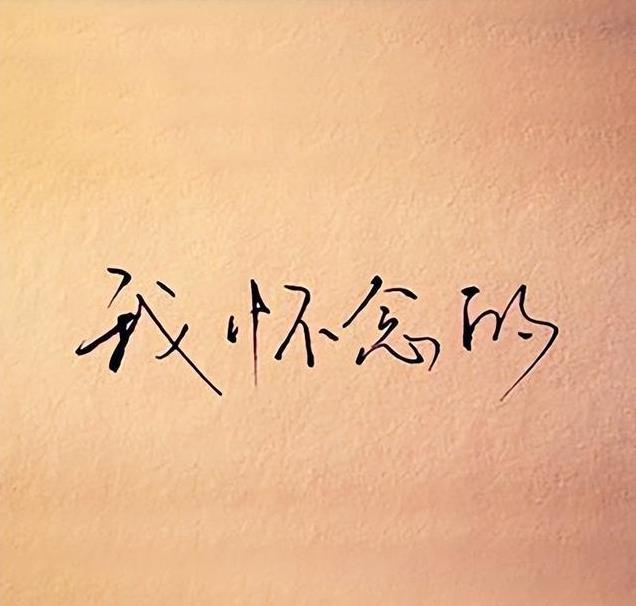 我怀念的